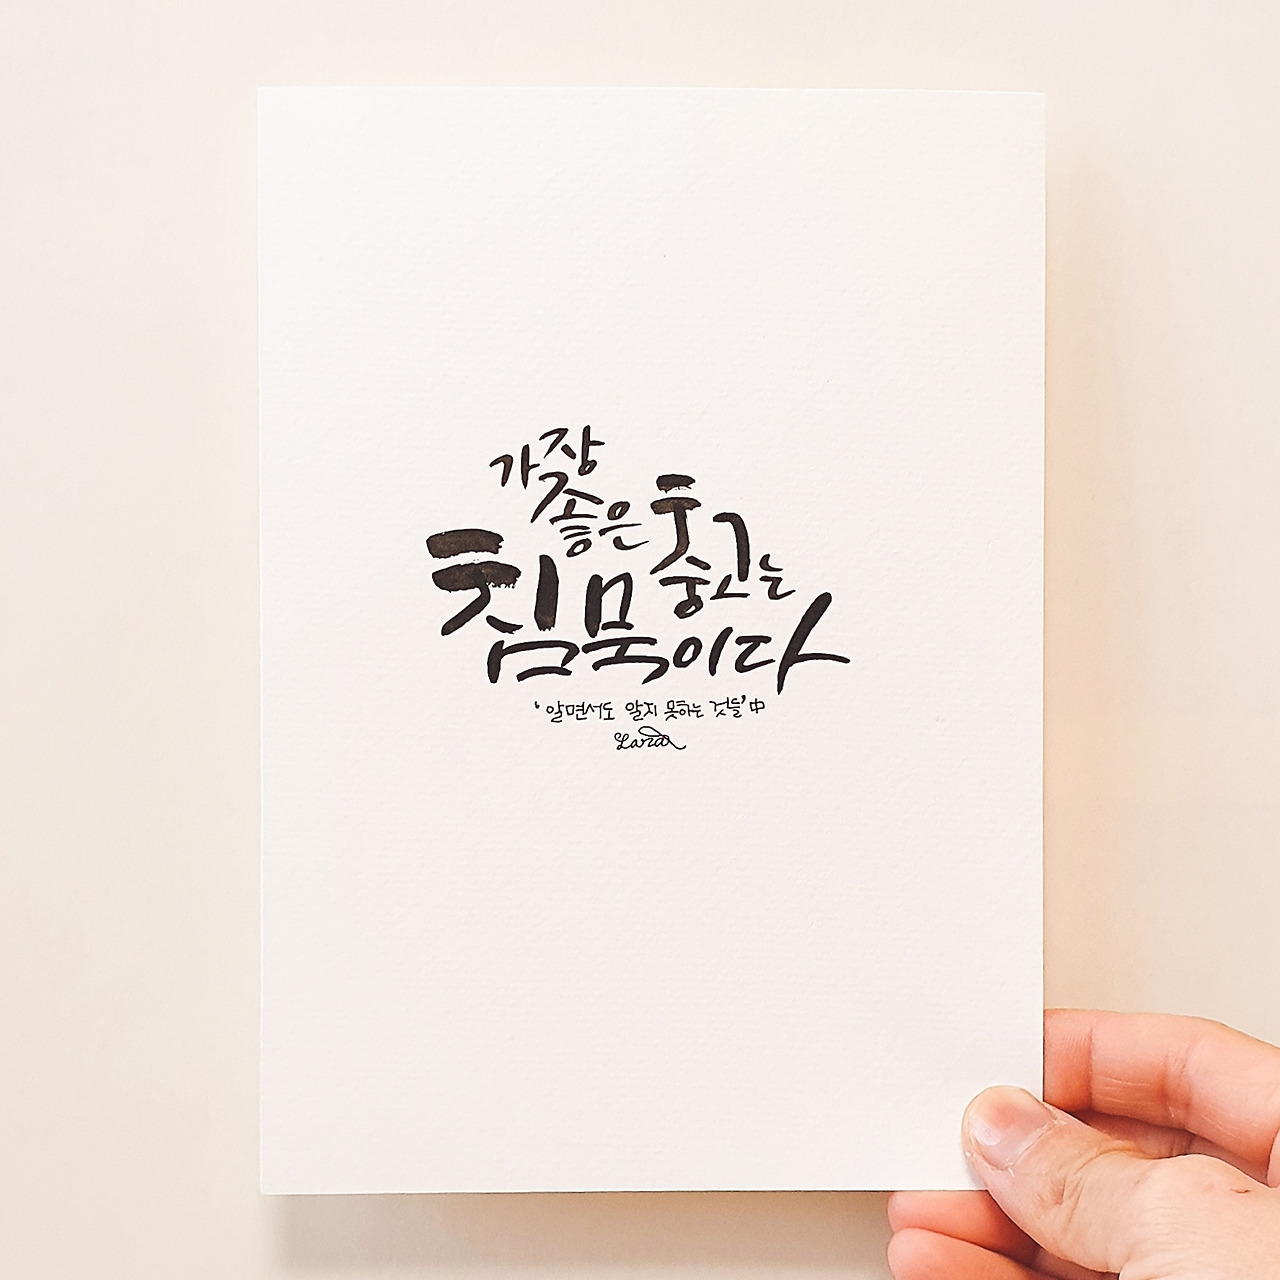 가장
좋은 충고는
침묵이다
'알면서도 알지 못하는 것들' 中